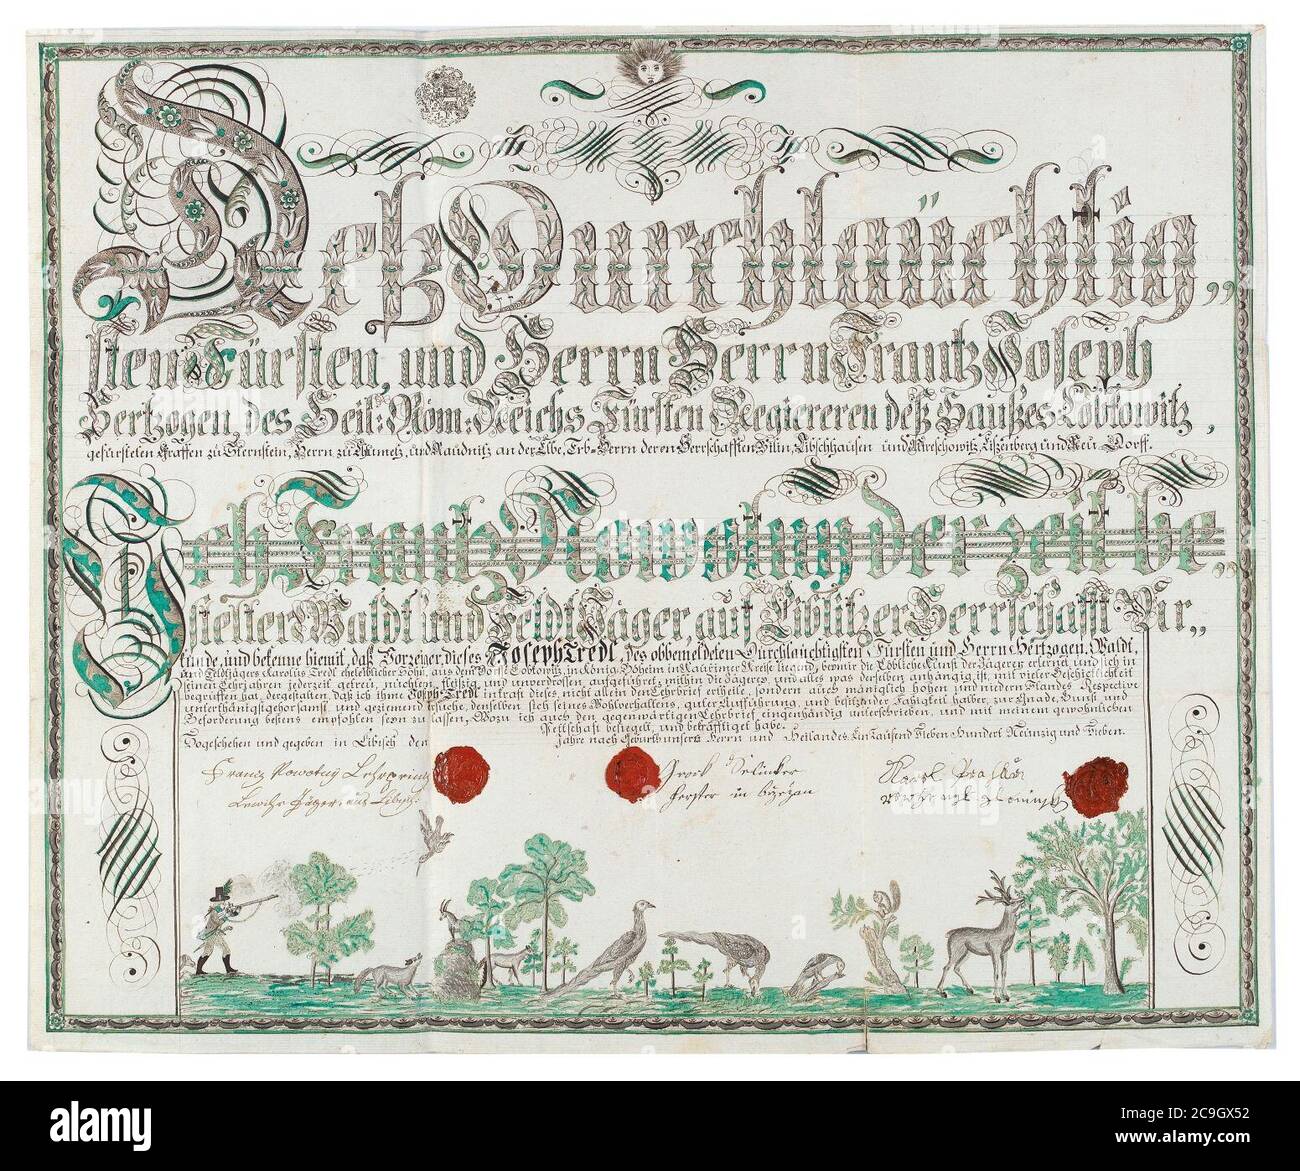 Deß Durchläuchtig„
sten Fürsten, und Herrn Herrn Frantz Joseph
Hertzogen, des Heil: Röm: Reichs Fürsten Regiereren deß Haußes Lobkowitz,
gefürsteten Graffen zu Sternstein, Herrn zu Chlumetz, und Raudnitz an der Elbe, Erb-Herrn deren Herrschafften Bilin, Liebschhausen und Mireschowitz, Eisenberg und Neu-Dorff.
Ich Frantz Nowotny derzeit be„
stelter Waldt und Feldt Jäger, auf Liblitzer Herrschafft Ur„
kunde, und bekenne hiemit, daß Vorzeiger, dieses Joseph Tredl, des obbemeldeten Durchläuchtigsten Fürsten und Herrn Hertzogen, Waldt,
und Feldjägers Karolus Tredl eheleiblicher Sohn, aus dem Dorfe Lobkowitz, in König Böheim in Kaurzimer Kreise liegend, bey mir die Löbliche Kunst der Jägerey erlernt, und sich in
seinen Lehrjahren jederzeit getreü, nüchtern, fleißig, und unverdrossen, aufgeführet, mithin die Jägerey, und alles was derselben anhängig ist, mit vieler Geschicklichkeit
begriffen habe, dergestalten, daß ich ihme Joseph Tredl in kraft dieses, nicht allein den Lehrbrief ertheile, sondern auch männiglich hohen und niedern Standes Respective
unterthänigst gehorsamst, und geziemend ersuche, denselben sich seines Wohlverhaltens, guter Aufführung, und besitzender Fähigkeit halber, zur Gnade, Gunst, und
Beförderung bestens empfohlen seyn zu lassen, Wozu ich auch den gegenwärtigen Lehrbrief eingenhändig unterschrieben, und mit meinem gewöhnlichen
Pettschaft besiegelt, und bekräfftiget habe.
So geschehen und gegeben in Libisch den
Jahre nach Geburth unsers Herrn und Heilandes. Ein Tausend Sieben Hundert Neünzig und Sieben.
Frantz Nowotny Lehrprintz
Jäger aus
Forster in
Karl
alamy
Image ID: 2C9GX52
www.alamy.com